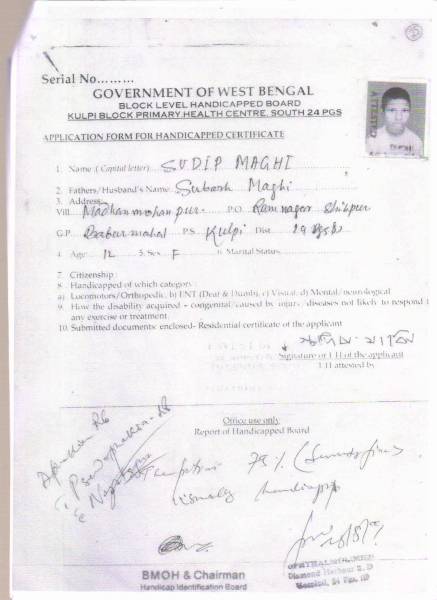 25
Serial No.........
GOVERNMENT OF WEST BENGAL
BLOCK LEVEL HANDICAPPED BOARD
KULPI BLOCK PRIMARY HEALTH CENTRE, SOUTH 24 PGS
APPLICATION FORM FOR HANDICAPPED CERTIFICATE
ATTESTED
1. Name :( Capital letter) SUDIP MAGHI
2. Fathers/Husband's Name Subash Maghi
3. Address
Vill P.O. Ramnagar
G.P. P.S. Kulpi Dist
4. Age 12 5. Sex F 6. Marital Status
7. Citizenship
8. Handicapped of which category
a) Locomotors/Orthopedic, b) ENT (Deaf & Dumb), c) Visual, d) Mental/neurological
9. How the disability acquired - congenital/caused by injury/diseases not likely to respond t
any exercise or treatment.
10. Submitted documents: enclosed- Residential certificate of the applicant
Signature or LTI of the applicant
LTI attested by
Office use only:
Report of Handicapped Board
Aphakia RE
Pseudophakia
Nystagmus
75%
visually handicapp
OPHTHALMOLOGIST
Diamond Harbour S. D
Hospital, 24 Pgs.
BMOH & Chairman
Handicap Identification Board